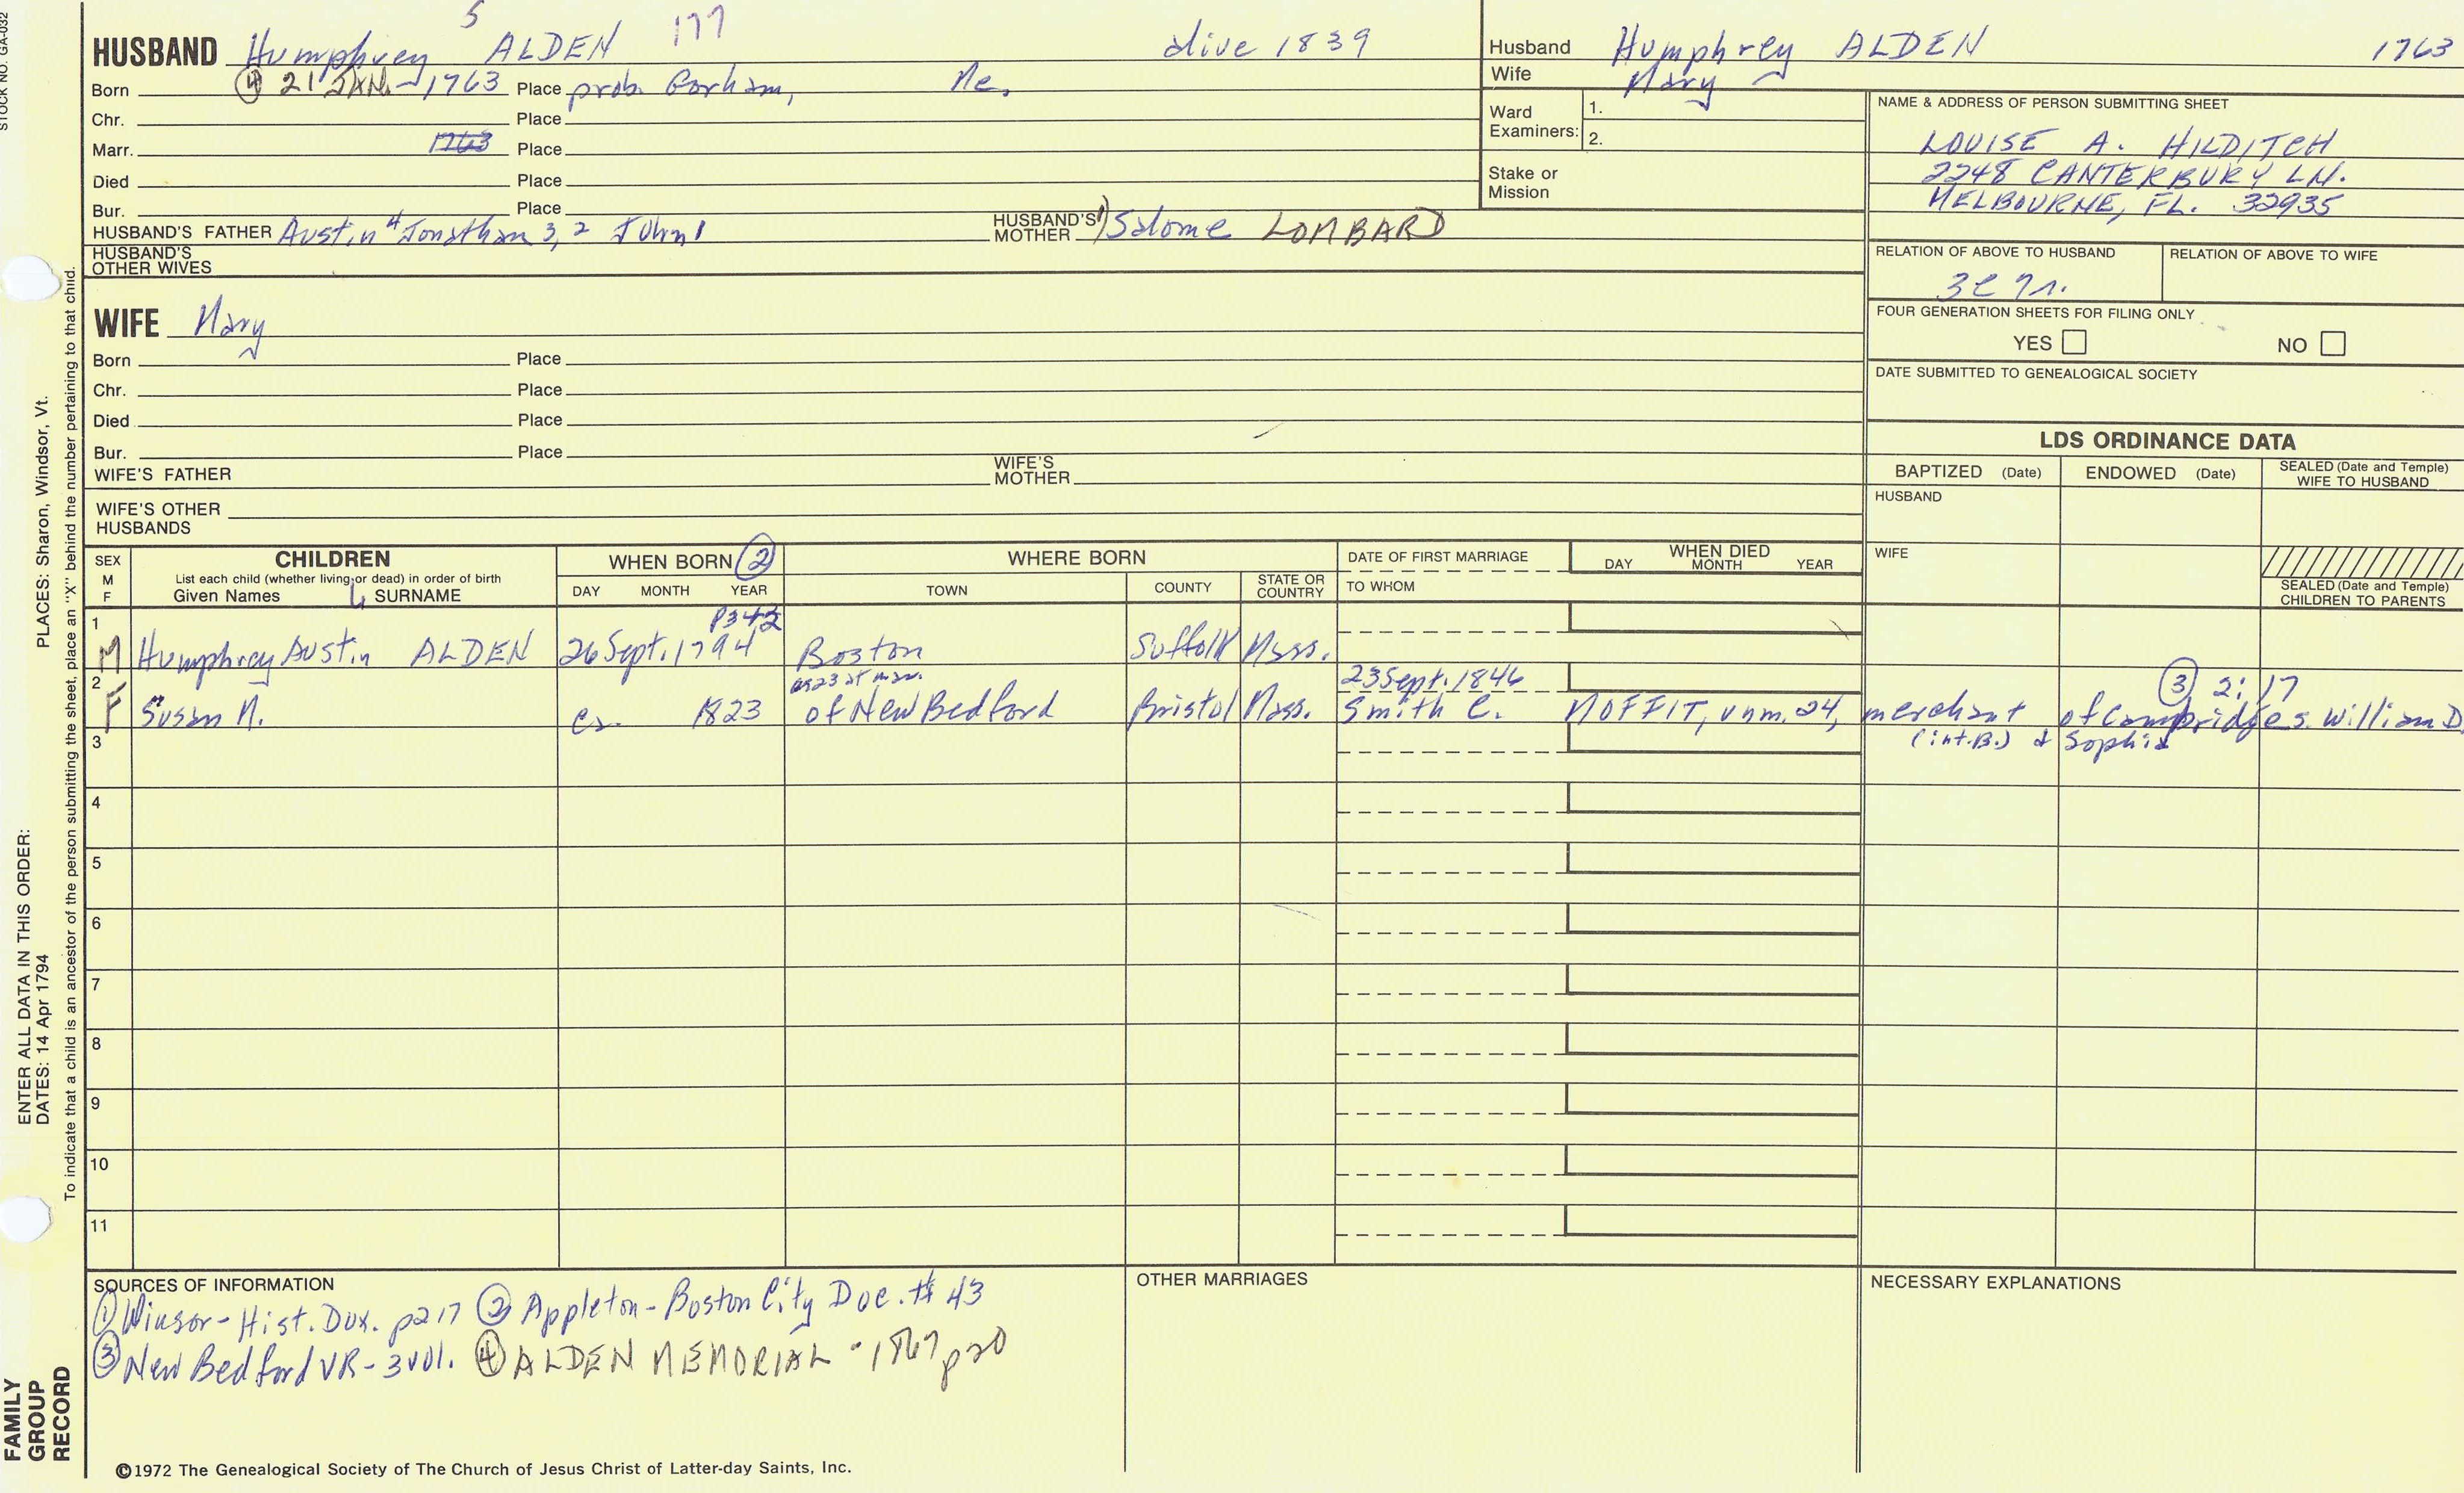 STOCK NO. GA-032
5
177
HUSBAND Humphrey ALDEN alive 1839
Born ④ 21 JAN. 1763 Place prob. Gorham, Me.
Chr. Place
Marr. 1763 Place
Died Place
Bur. Place
HUSBAND'S FATHER Austin 4 Jonathan 3, 2 John 1
HUSBAND'S MOTHER 1) Salome LOMBARD
HUSBAND'S OTHER WIVES
Husband Humphrey ALDEN 1763
Wife Mary
Ward Examiners: 1.
2.
Stake or Mission
NAME & ADDRESS OF PERSON SUBMITTING SHEET
LOUISE A. HILDITCH
2248 CANTERBURY LN.
MELBOURNE, FL. 32935
RELATION OF ABOVE TO HUSBAND
RELATION OF ABOVE TO WIFE
FOUR GENERATION SHEETS FOR FILING ONLY
YES NO
DATE SUBMITTED TO GENEALOGICAL SOCIETY
WIFE Mary
Born Place
Chr. Place
Died Place
Bur. Place
WIFE'S FATHER
WIFE'S MOTHER
WIFE'S OTHER HUSBANDS
LDS ORDINANCE DATA
BAPTIZED (Date) ENDOWED (Date) SEALED (Date and Temple) WIFE TO HUSBAND
HUSBAND
WIFE
SEALED (Date and Temple) CHILDREN TO PARENTS
SEX M F
CHILDREN
List each child (whether living or dead) in order of birth
Given Names SURNAME
WHEN BORN ②
DAY MONTH YEAR
WHERE BORN
TOWN COUNTY STATE OR COUNTRY
DATE OF FIRST MARRIAGE
TO WHOM
WHEN DIED
DAY MONTH YEAR
p342
1 M Humphrey Austin ALDEN 26 Sept. 1794 Boston Suffolk Mass.
23 Sept. 1846 ③ 2:17
2 F Susan M. ca. 1823 of New Bedford Bristol Mass. Smith C. MOFFIT, unm. 24, merchant of Cambridge s. William D
(int. B.) & Sophia
3
4
5
6
7
8
9
10
11
SOURCES OF INFORMATION
① Winsor - Hist. Dux. p217 ② Appleton - Boston City Doc. # 43
③ New Bedford VR - 3 vol. ④ ALDEN MEMORIAL - 1867 p20
OTHER MARRIAGES
NECESSARY EXPLANATIONS
©1972 The Genealogical Society of The Church of Jesus Christ of Latter-day Saints, Inc.
PLACES: Sharon, Windsor, Vt.
ENTER ALL DATA IN THIS ORDER:
DATES: 14 Apr 1794
To indicate that a child is an ancestor of the person submitting the sheet, place an "X" behind the number pertaining to that child.
FAMILY GROUP RECORD